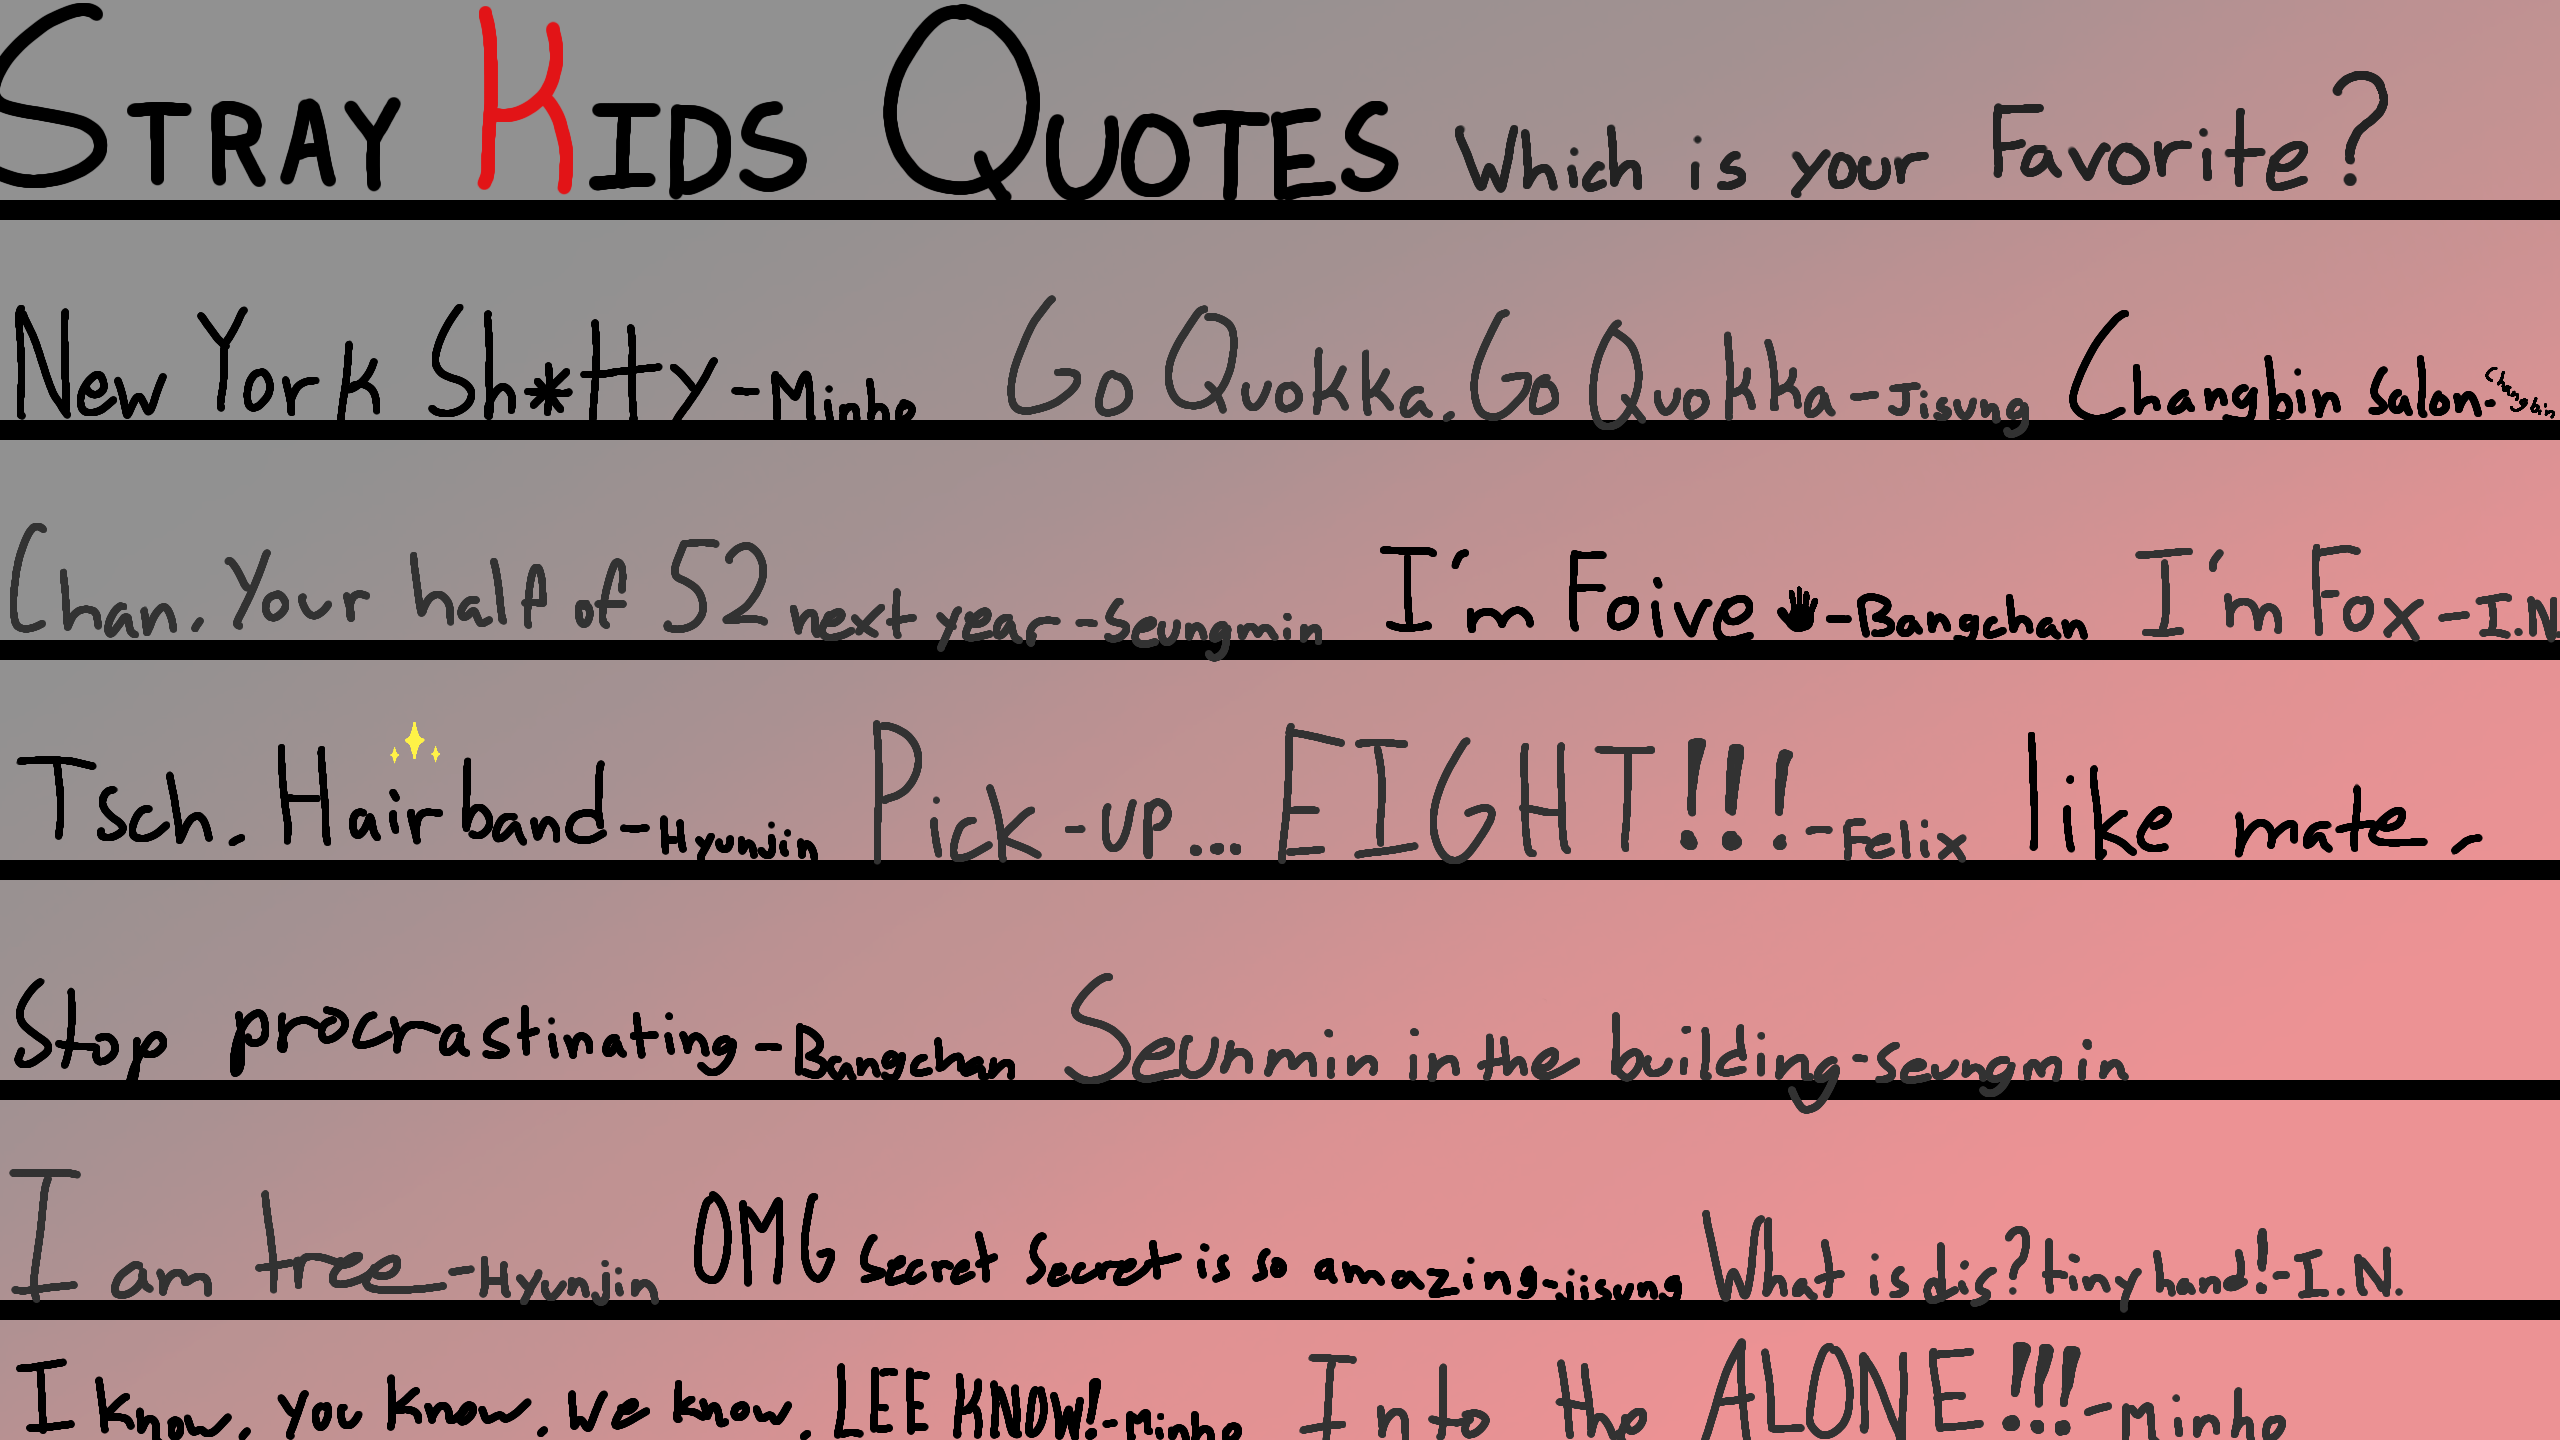 STRAY KIDS QUOTES Which is your Favorite?
New York Sh*tty-Minho Go Quokka. Go Quokka-Jisung Changbin Salon-Changbin
Chan. Your half of 52 next year-Seungmin I'm Foive-Bangchan I'm Fox-I.N.
Tsch. Hair band-Hyunjin Pick-up... EIGHT!!!-Felix like mate,
Stop procrastinating-Bangchan Seunmin in the building-Seungmin
I am tree-Hyunjin OMG Secret Secret is so amazing-jisung What is dis? tiny hand!-I.N.
I know, you know, we know, LEE KNOW!-Minho Into the ALONE!!!-Minho